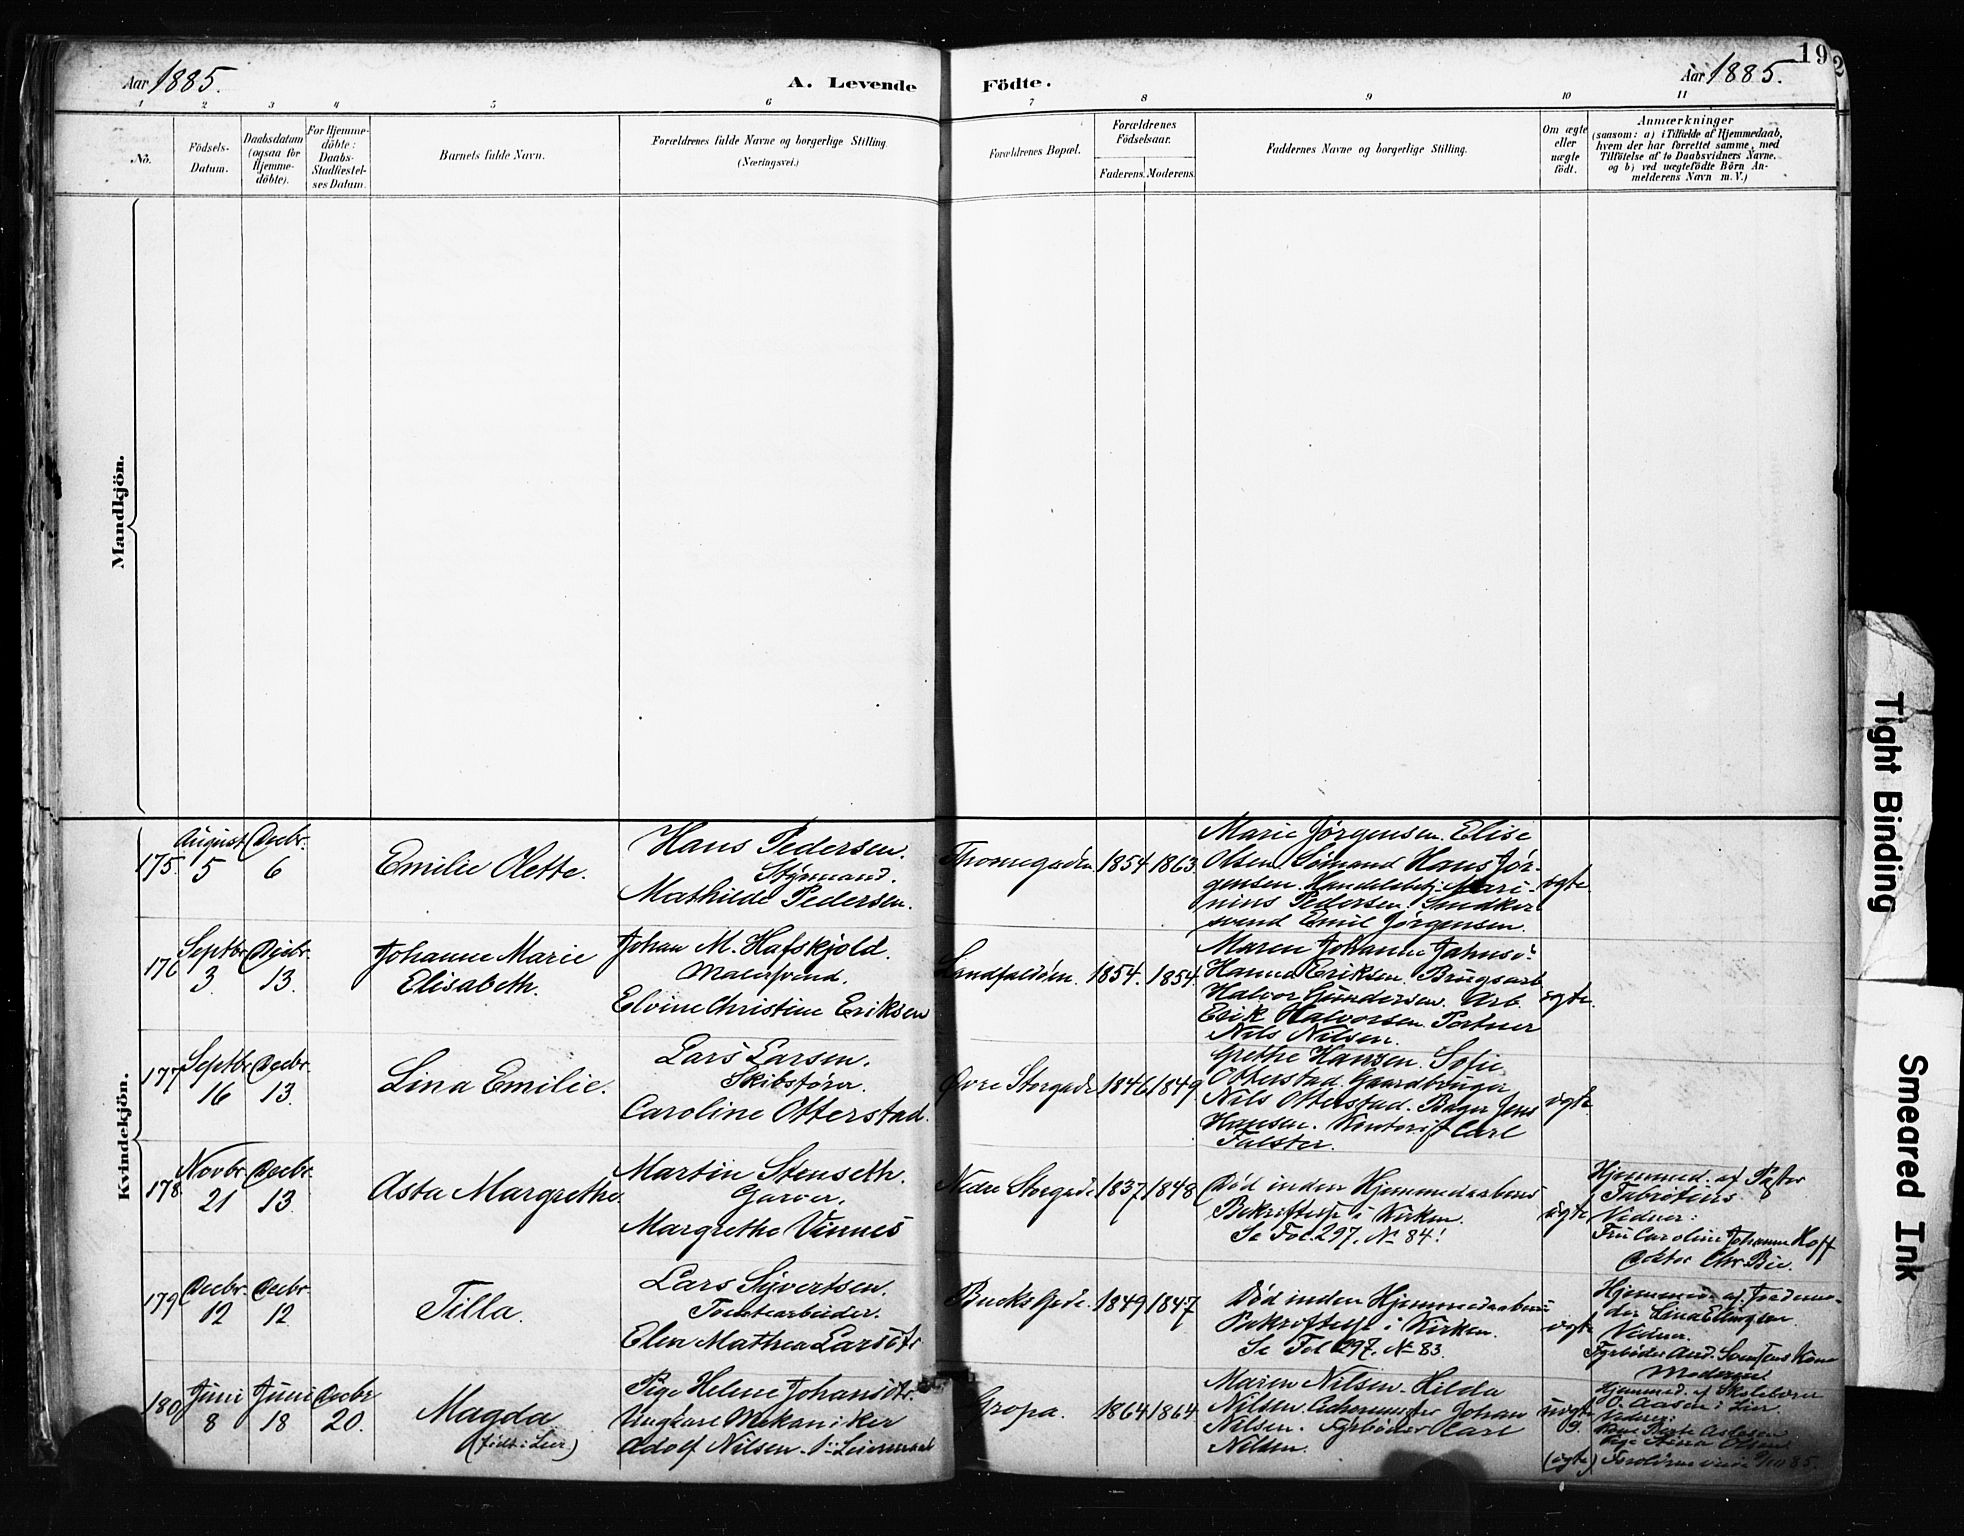 Aar 1885.
A. Levende Födte.
Aar 1885.
19
2
1 2 3 4 5 6 7 8 9 10 11
No.
Födsels-
Datum.
Daabsdatum
(ogsaa for
Hjemme-
döbte).
For Hjemme-
döbte:
Daabs-
Stadfæstel-
ses Datum.
Barnets fulde Navn.
Forældrenes fulde Navne og borgerlige Stilling
(Næringsvei.)
Forældrenes Bopæl.
Forældrenes
Födselsaar.
Faderens. Moderens.
Faddernes Navne og borgerlige Stilling.
Om ægte
eller
uægte
födt.
Anmærkninger
(saasom: a) i Tilfælde af Hjemmedaab,
hvem der har forrettet samme, med
Tilföielse af to Daabsvidners Navne,
og b) ved uægtefödte Börn An-
melderens Navn m. V.)
Mandkjön.
Kvindekjön.
175.
August
5
Decbr.
6
Emilie Olette.
Hans Pedersen.
Styrmand.
Mathilde Pedersen.
Thornegaden
1854.
1863.
Marie Jørgensen. Elise
Olsen. Sömand Hans Jör-
gensen. Handelsbetj. Mari-
nius Pedersen. Smedker
svend Emil Jørgensen.
ægte
176
Septbr.
3.
Decbr.
13.
Johanne Marie
Elisabeth.
Johan M. Hafskjold.
Malersvend.
Elvine Christine Eriksen
Landfaldöen.
1854.
1854.
Maren Johanne Jahns.
Hanna Eriksen. Brugsarb.
Halvor Gundersen. Arb.
Erik Halvorsen. Portner
Nils Nilsen.
ægte.
177
Septbr.
16
Decbr.
13.
Lina Emilie.
Lars Larsen.
Skibsförer.
Caroline Otterstad.
Øvre Storgade
1846
1849.
Grethe Hansen. Sofie
Otterstad. Gaardbruger
Nils Otterstad. Bager Jens
Hansen. Kontorist Carl
Falster.
ægte
178.
Novbr.
21
Decbr.
13.
Asta Margrethe
Martin Stenseth.
Garver.
Margrethe Vinnes
Nedre Storgade
1837.
1848
Död inden Hjemmedaabens
Bekræftelse i Kirken.
Se Fol. 297. No 84!
ægte
Hjemmed. af Pastor
Fabritius
Vidner:
Fru Caroline Johanne Hoff
Doktor Chr. Bie.
179
Decbr.
12
Decbr.
12
Tilla.
Lars Syvertsen.
Tomtearbeider.
Elen Mathea Larsdtr.
Bucks Gade.
1849
1847
Död inden Hjemmedaabens
Bekræftelse i Kirken.
Se Fol 297. No 83.
ægte
Hjemmed. af Jordemo-
der Lina Ellingsen.
Vidner.
180
Juni
8
Juni
18
Decbr
20.
Magda
(född i Lier)
Pige Helene Johansdtr.
Ungkarl Mekaniker
Adolf Nilsen. 1ste Leiermaal
Gropa.
1864
1864
Maren Nilsen. Hilda
Nilsen. Johan
Nilsen. Fyrböder Carl
Nilsen.
uægte
9.
(ægte)
Hjemmed. af Skolelærer
O. Aasen i Lier.
Vidner:
Olsen.
Tight Binding
Smeared Ink